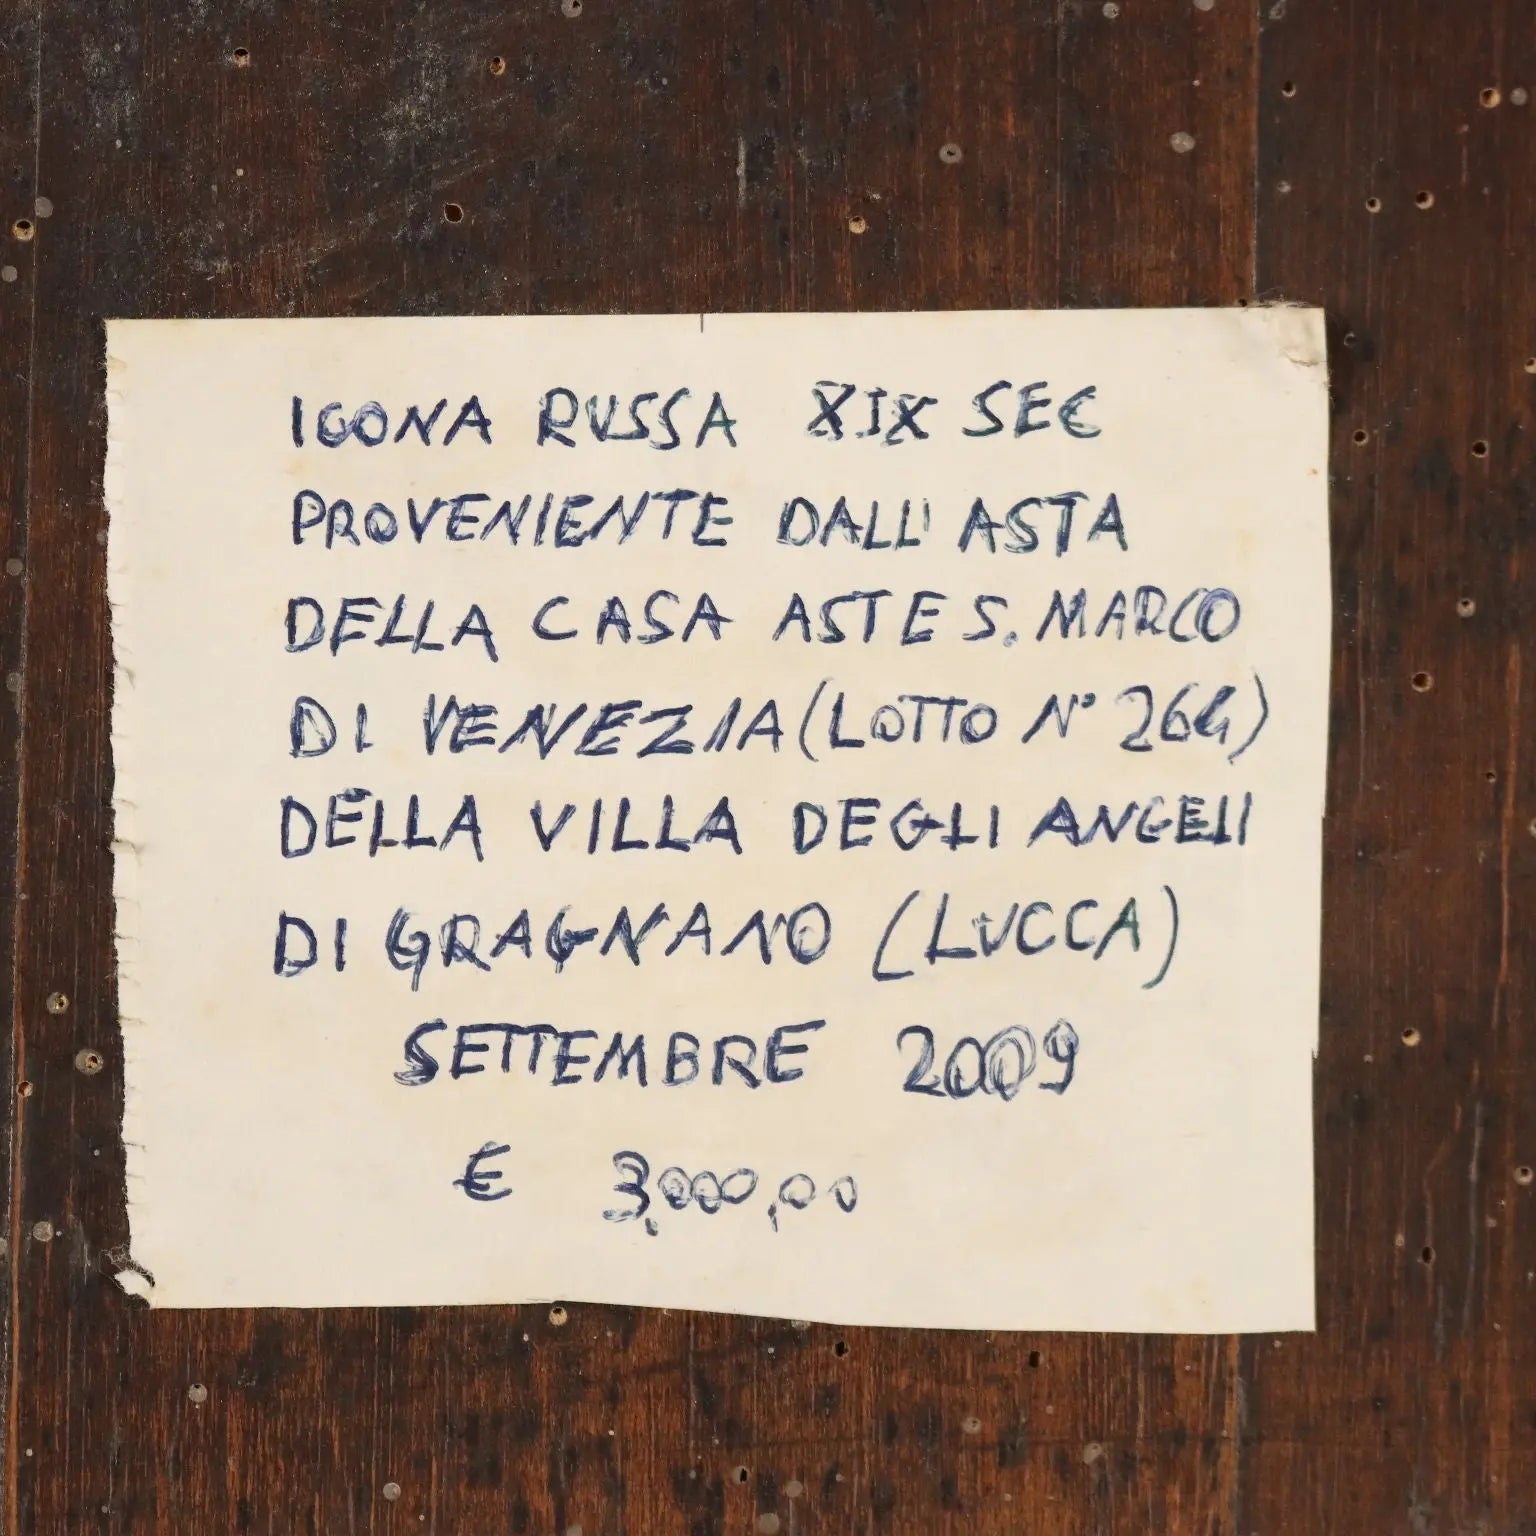 ICONA RUSSA XIX SEC
PROVENIENTE DALL'ASTA
DELLA CASA ASTE S. MARCO
DI VENEZIA (LOTTO N° 264)
DELLA VILLA DEGLI ANGELI
DI GRAGNANO (LUCCA)
SETTEMBRE 2009
€ 3.000,00